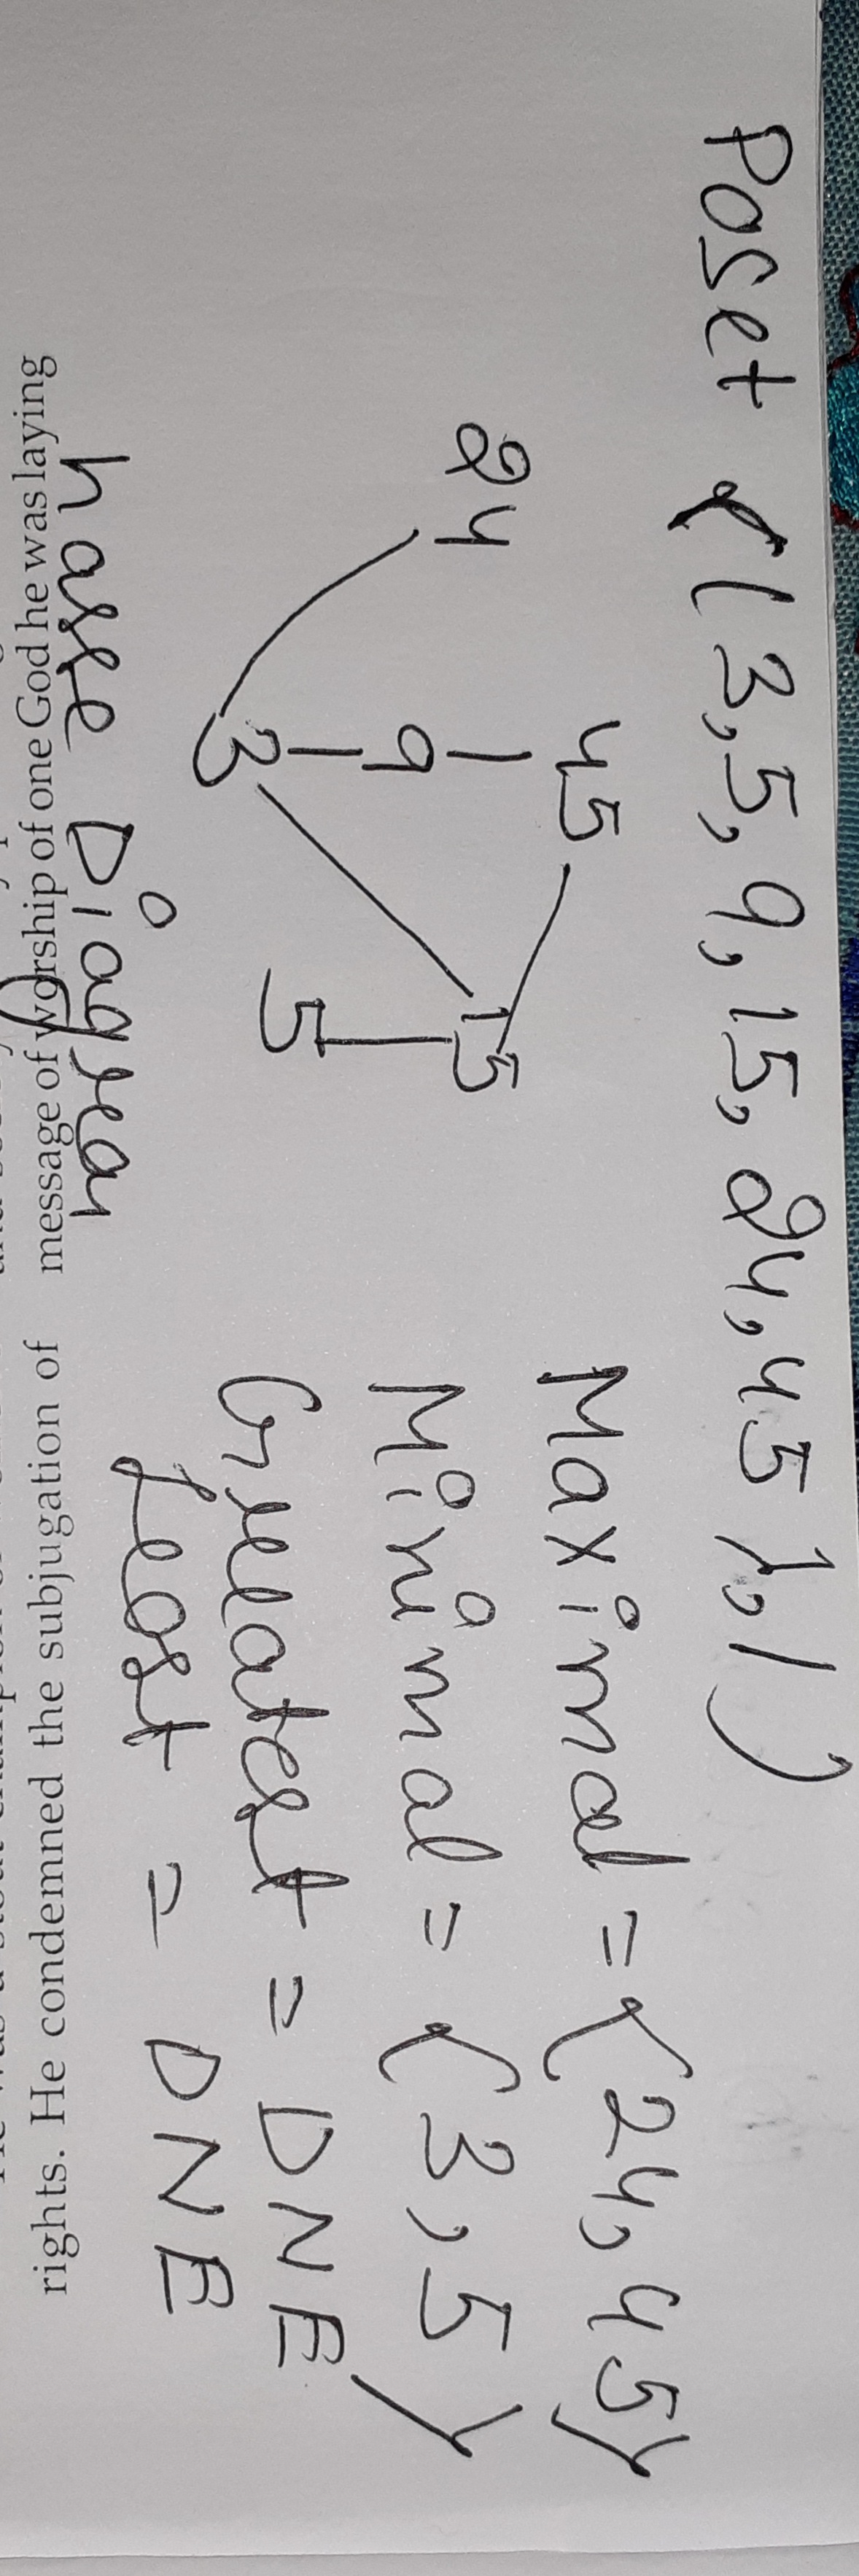 Poset ({3,5,9,15,24,45},/)
45
24 9 15
3 5
hasse Diagram
Maximal = {24,45}
Minimal = {3,5}
Greatest = DNE
Least = DNE
message of worship of one God he was laying
rights. He condemned the subjugation of